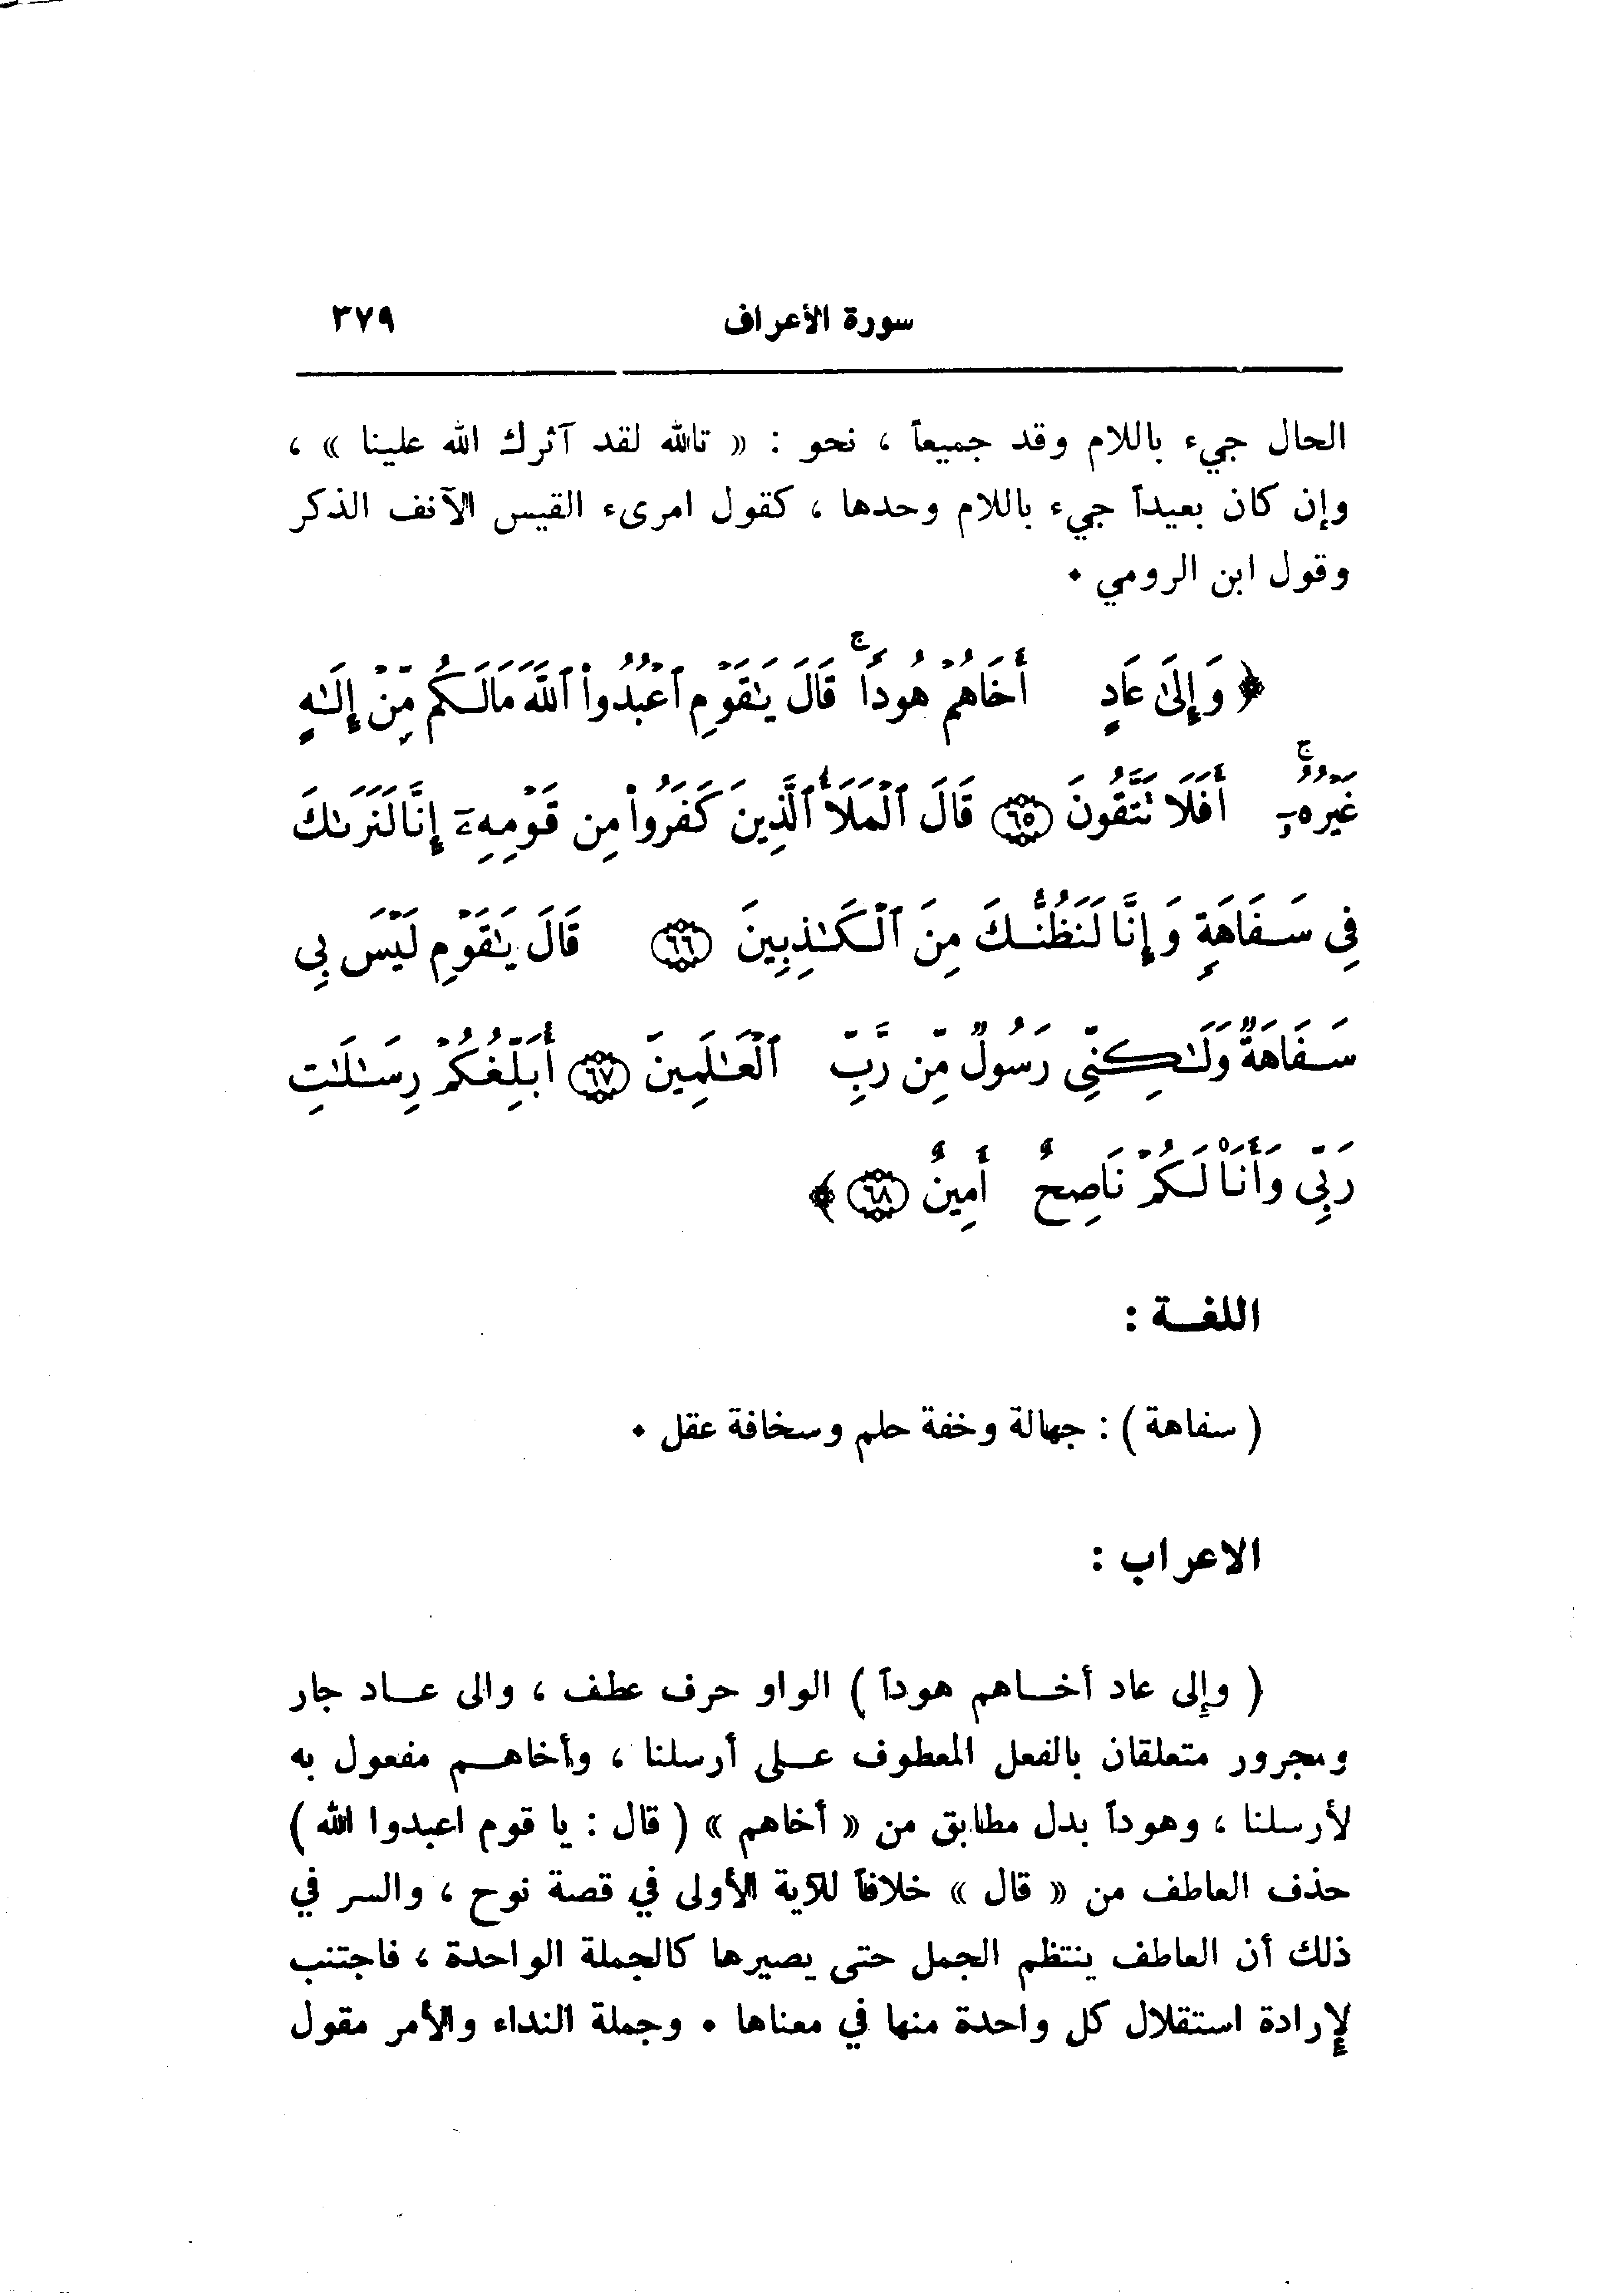 سورة الأعراف ٣٧٩
الحال جيء باللام وقد جميعاً ، نحو : « تالله لقد آثرك الله علينا » ،
وإن كان بعيداً جيء باللام وحدها ، كقول امرىء القيس الآنف الذكر
وقول ابن الرومي •
﴿ وَإِلَىٰ عَادٍ أَخَاهُمْ هُودًا ۚ قَالَ يَٰقَوْمِ ٱعْبُدُوا۟ ٱللَّهَ مَا لَكُم مِّنْ إِلَٰهٍ
غَيْرُهُۥٓ ۚ أَفَلَا تَتَّقُونَ ٦٥ قَالَ ٱلْمَلَأُ ٱلَّذِينَ كَفَرُوا۟ مِن قَوْمِهِۦٓ إِنَّا لَنَرَىٰكَ
فِى سَفَاهَةٍ وَإِنَّا لَنَظُنُّكَ مِنَ ٱلْكَٰذِبِينَ ٦٦ قَالَ يَٰقَوْمِ لَيْسَ بِى
سَفَاهَةٌ وَلَٰكِنِّى رَسُولٌ مِّن رَّبِّ ٱلْعَٰلَمِينَ ٦٧ أُبَلِّغُكُمْ رِسَٰلَٰتِ
رَبِّى وَأَنَا۠ لَكُمْ نَاصِحٌ أَمِينٌ ٦٨ ﴾
اللغــة :
( سفاهة ) : جهالة وخفة حلم وسخافة عقل •
الاعراب :
( وإلى عاد أخــاهم هوداً ) الواو حرف عطف ، والى عــاد جار
ومجرور متعلقان بالفعل المعطوف عــلى أرسلنا ، وأخاهــم مفعول به
لأرسلنا ، وهوداً بدل مطابق من « أخاهم » ( قال : يا قوم اعبدوا الله )
حذف العاطف من « قال » خلافاً للآية الأولى في قصة نوح ، والسر في
ذلك أن العاطف ينتظم الجمل حتى يصيرها كالجملة الواحدة ، فاجتنب
لإرادة استقلال كل واحدة منها في معناها • وجملة النداء والأمر مقول